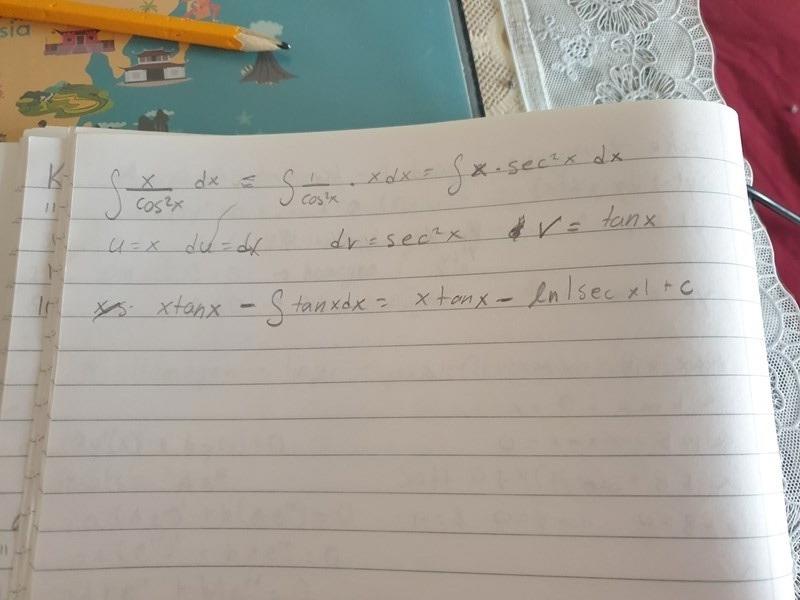 sia
∫ x/cos²x dx = ∫ 1/cos²x · xdx = ∫ x · sec²x dx
u = x du = dx dv = sec²x v = tanx
xtanx - ∫ tanxdx = xtanx - ln|sec x| + c